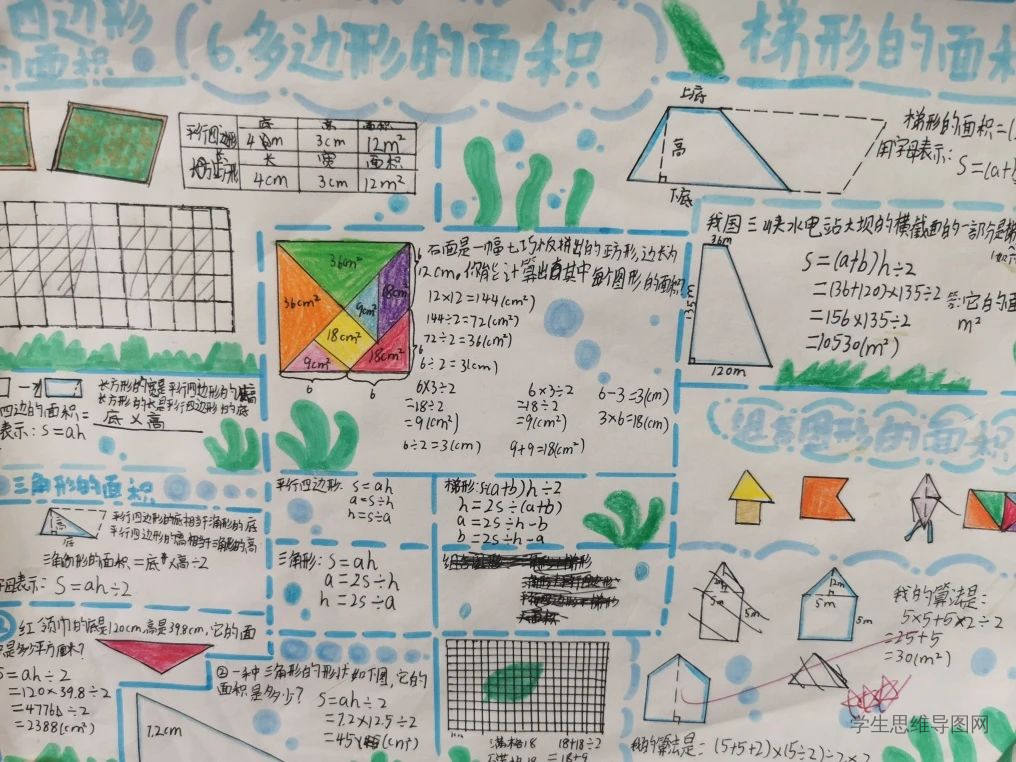 四边形
的面积
6.多边形的面积
梯形的面积
底 高 面积
平行四边形 4cm 3cm 12m²
长 宽 面积
长方形 4cm 3cm 12m²
上底
高
下底
梯形的面积=(
用字母表示:
S=(a+b
36m²
36cm²
18cm
9cm²
18cm²
9cm²
18cm²
6
6
6
右面是一幅七巧板拼出的正方形,边长为
12cm。你能计算出其中每个图形的面积
12×12=144(cm²)
144÷2=72(cm²)
72÷2=36(cm²)
6÷2=3(cm)
6×3÷2
=18÷2
=9(cm²)
6÷2=3(cm)
6×3÷2
=18÷2
=9(cm²)
9+9=18(cm²)
6-3=3(cm)
3×6=18(cm)
我国三峡水电站大坝的横截面的一部分是梯
36m
135m
120m
S=(a+b)h÷2
=(36+120)×135÷2
=156×135÷2
=10530(m²)
答:它的面
m²
长方形的宽是平行四边形的高
长方形的长是平行四边形的底
四边的面积=底×高
表示:S=ah
三角形的面积
高
底
平行四边形的底相当于三角形的底
平行四边形的高相当于三角形的高
三角形的面积=底×高÷2
字母表示: S=ah÷2
平行四边形: S=ah
a=S÷h
h=S÷a
梯形:S(a+b)h÷2
h=2S÷(a+b)
a=2S÷h-b
b=2S÷h-a
三角形:S=ah
a=2S÷h
h=2S÷a
组合图形的面积
2m
5m
5m
12m
5m
5m
我的算法是:
5×5+5×2÷2
=25+5
=30(m²)
红领巾的底是120cm,高是39.8cm,它的面
积是多少平方厘米?
S=ah÷2
=120×39.8÷2
=4776÷2
=2388(cm²)
②一种三角形的形状如下图,它的
面积是多少?
7.2cm
S=ah÷2
=7.2×12.5÷2
=45(cm²)
满格18 18+18÷2
=18+9
我的算法是: (5+5+2)×(5÷2)÷2×2
学生思维导图网